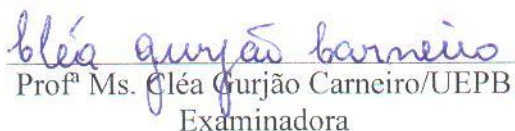 Cléa Gurjão Carneiro
Profª Ms. Cléa Gurjão Carneiro/UEPB
Examinadora